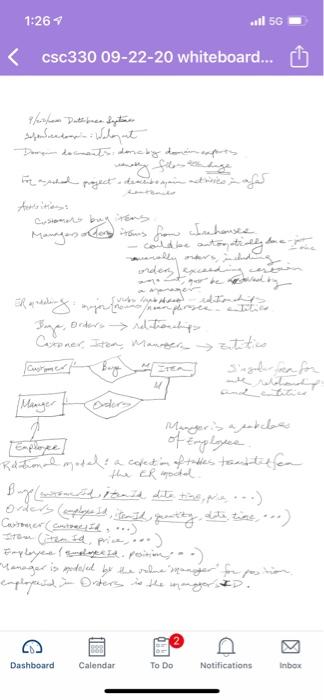 1:26
5G
csc330 09-22-20 whiteboard...
Database Systems
: Walmart
Domain documents: done by domain experts
usually files
For a school project, describe main activities in a few
sentences
Activities:
Customers buy items.
Managers orders items from warehouse
— could be automatically done
— usually orders, including
orders exceeding certain
amount, must be by
a manager
ER modeling:
Buys, Orders → relationships
Customer, Item, Managers → Entities
Customer
Buy
M
Item
Singular form for
all relationships
and entities
M
Manager
Orders
Manager is a subclass
of Employee
Employee
Relational model: a collection of tables translated from
the ER model
Buy (customerId, itemId, date, time, price ...)
Orders (employeeId, itemId, quantity, date, time, ...)
Customer (customerId, ...)
Item (itemId, price, ...)
Employee (employeeId, position, ...)
Manager is modeled by the value "manager" for position
employeeId in Orders is the manager's ID.
2
Dashboard
Calendar
To Do
Notifications
Inbox